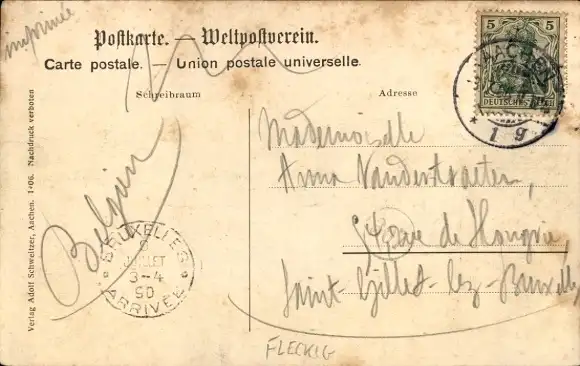 imprimée
Postkarte. — Weltpostverein.
Carte postale. — Union postale universelle.
Schreibraum
Adresse
5 5
DEUTSCHES
AACHEN
* 1 g *
Mademoiselle
Anna Vanderstraeten,
rue de Hongrie,
Saint-Gilles-lez-Bruxelles
Belgien
BRUXELLES
9
JUILLET
3-4
90
ARRIVÉE
Verlag Adolf Schweitzer, Aachen. 1•06. Nachdruck verboten
FLECKIG